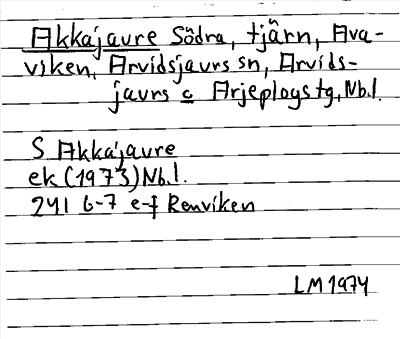 Akkajaure Södra, tjärn, Ava-
viken, Arvidsjaurs sn, Arvids-
jaurs o Arjeplogs tg, Nb.l.
S Akkajaure
ek (1973) Nb.l.
24I 6-7 e-f Renviken
LM 1974